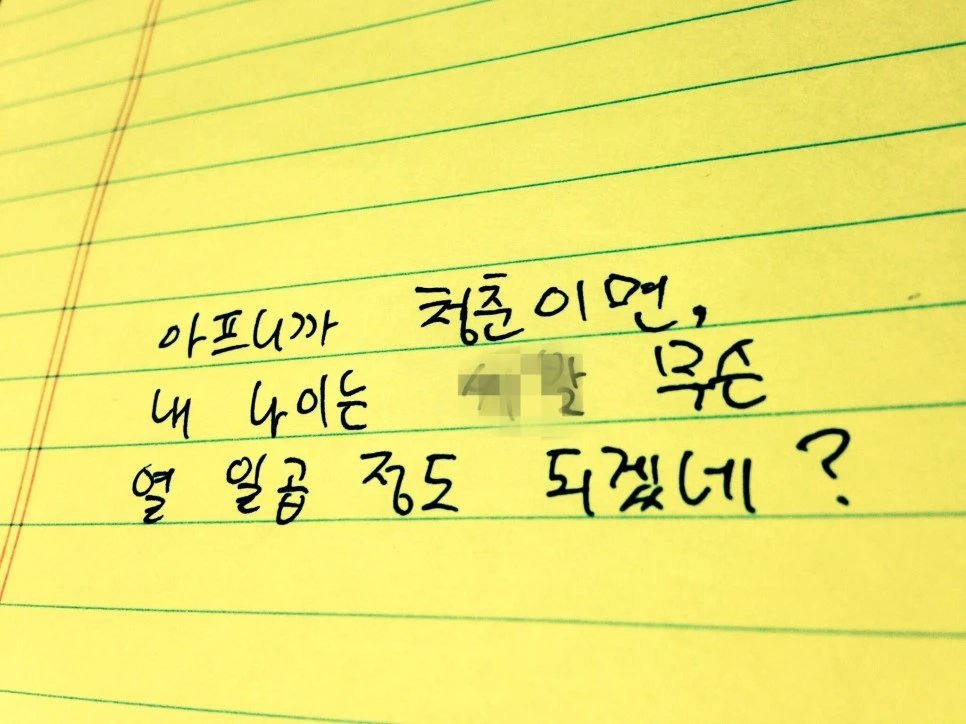 아프니까 청춘이면,
내 나이는 무슨
열 일곱 정도 되겠네?